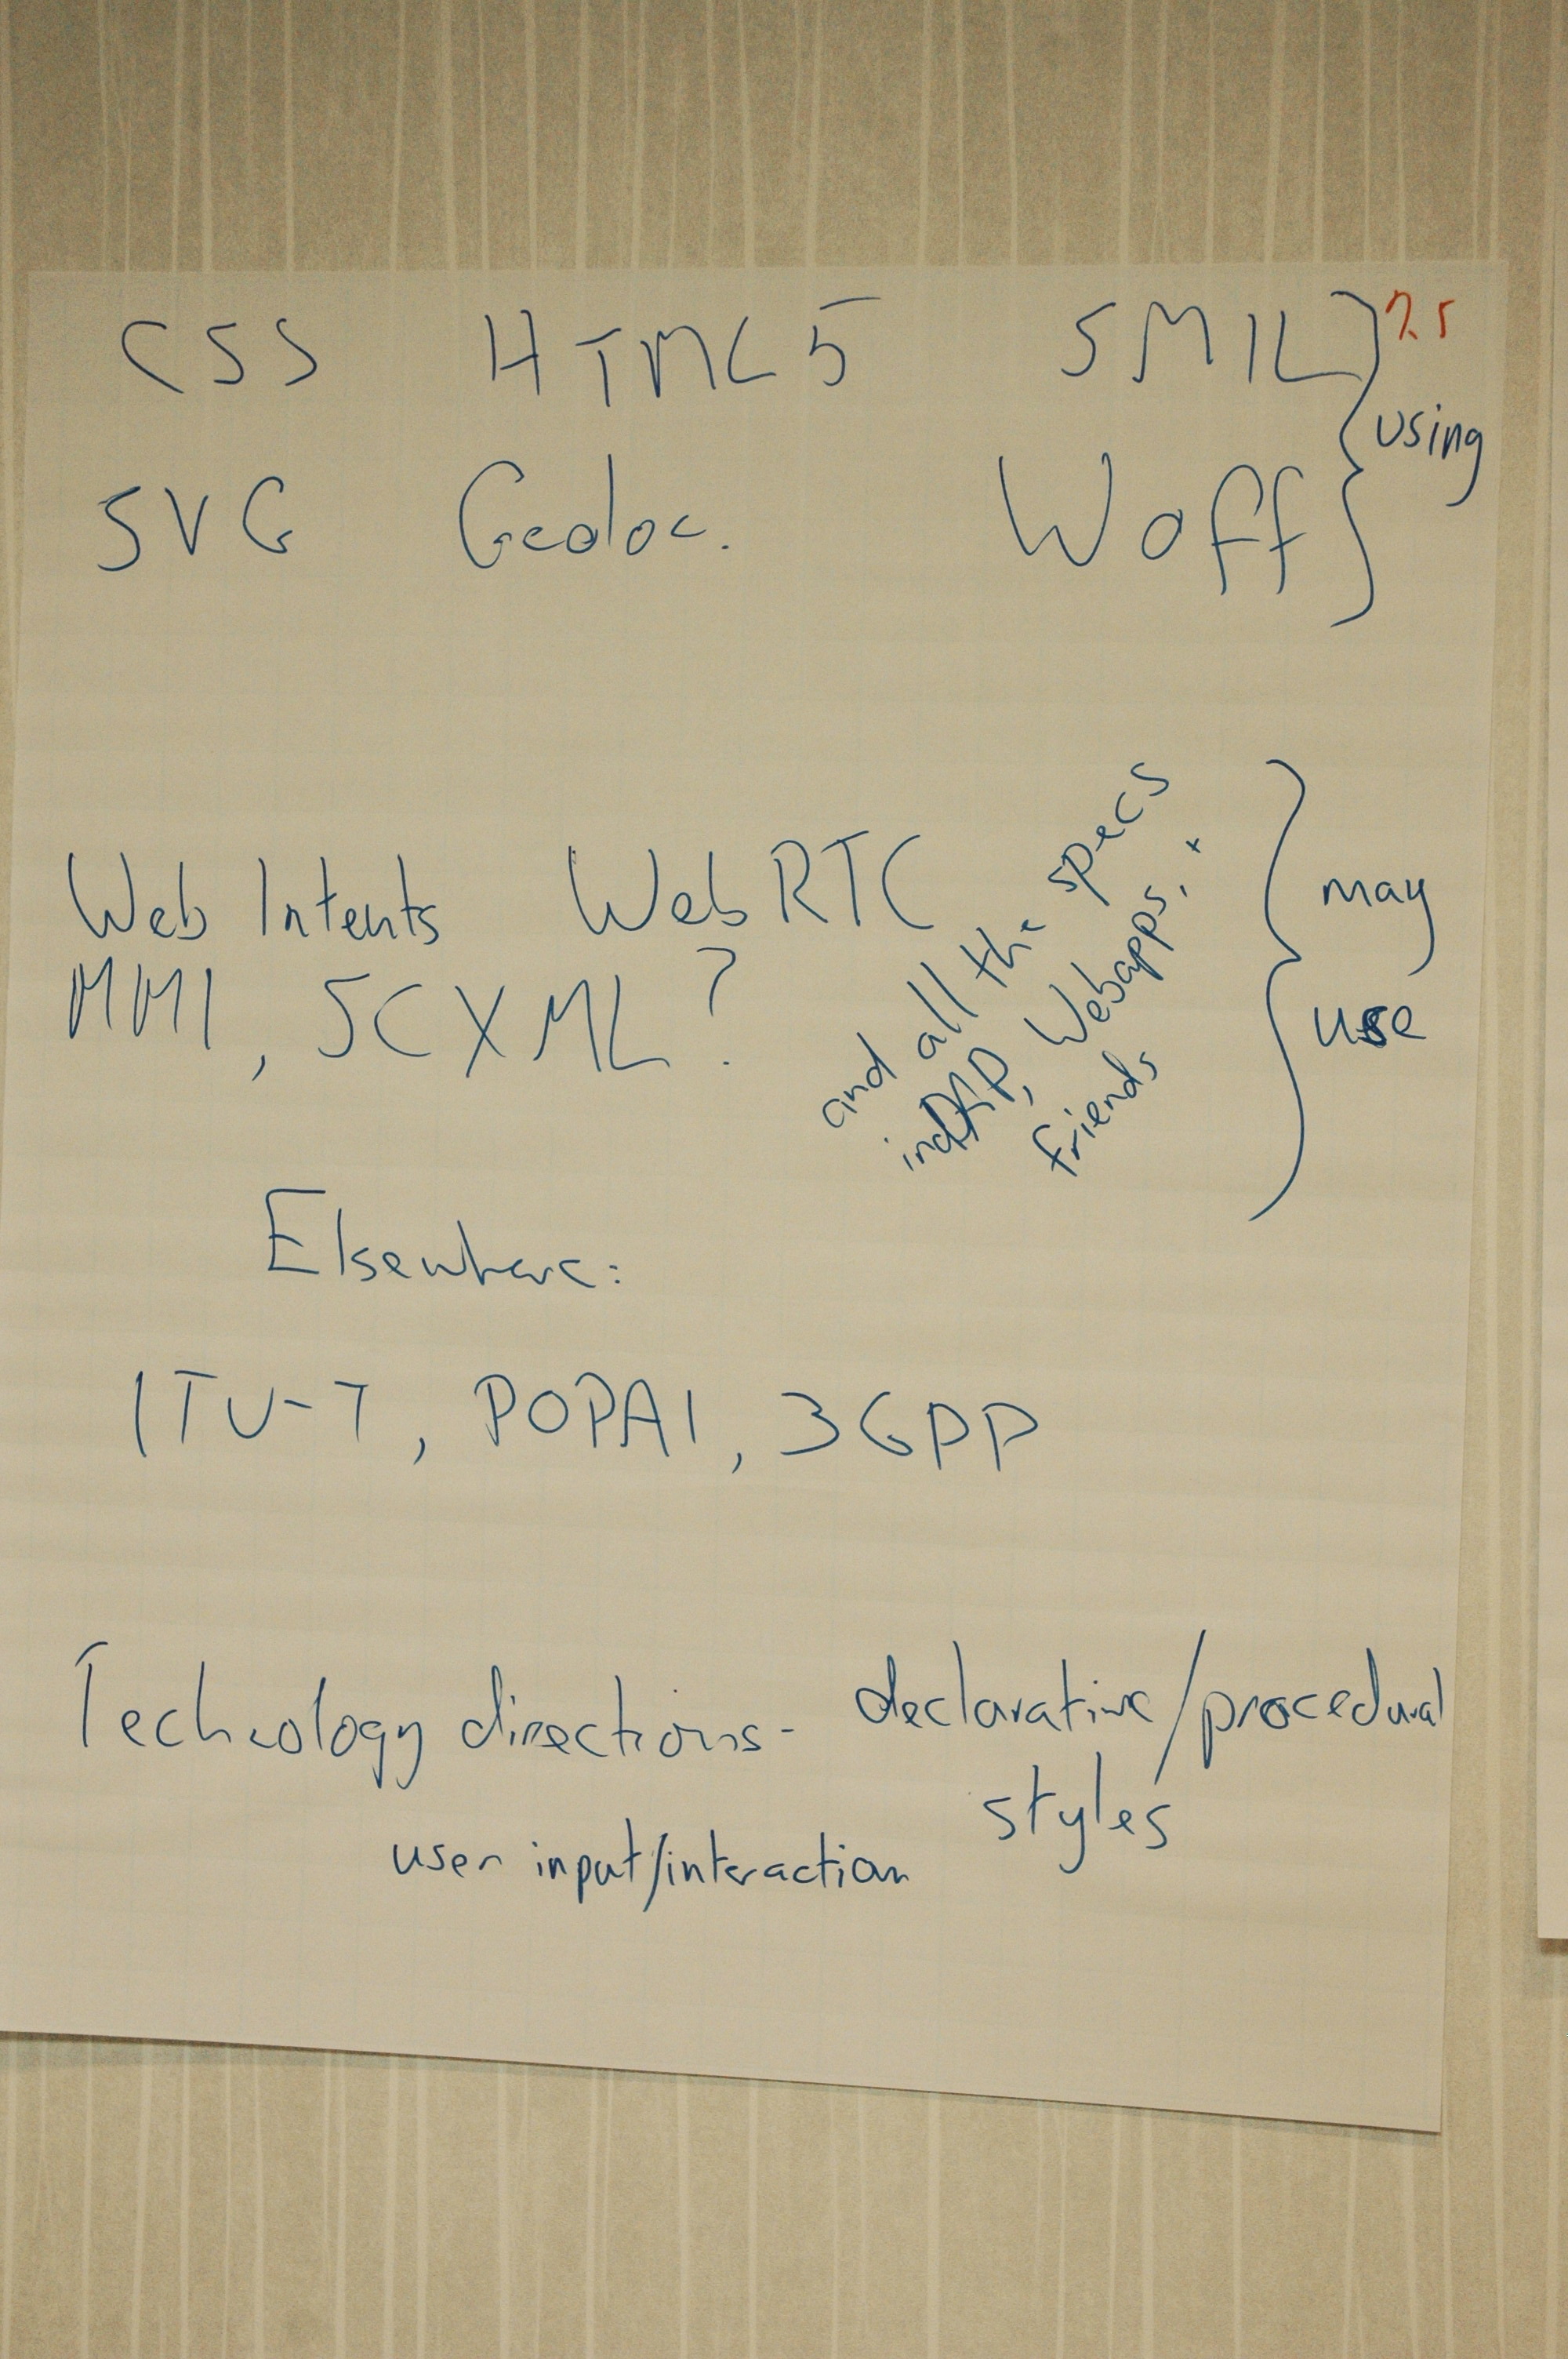 CSS HTML5 SMIL 7.5
SVG Geoloc. Woff
using
Web Intents WebRTC
MMI, SCXML?
and all the specs
in DAP, Webapps, +
friends
may
use
Elsewhere:
ITU-T, POPAI, 3GPP
Technology directions - declarative/procedural
styles
user input/interaction